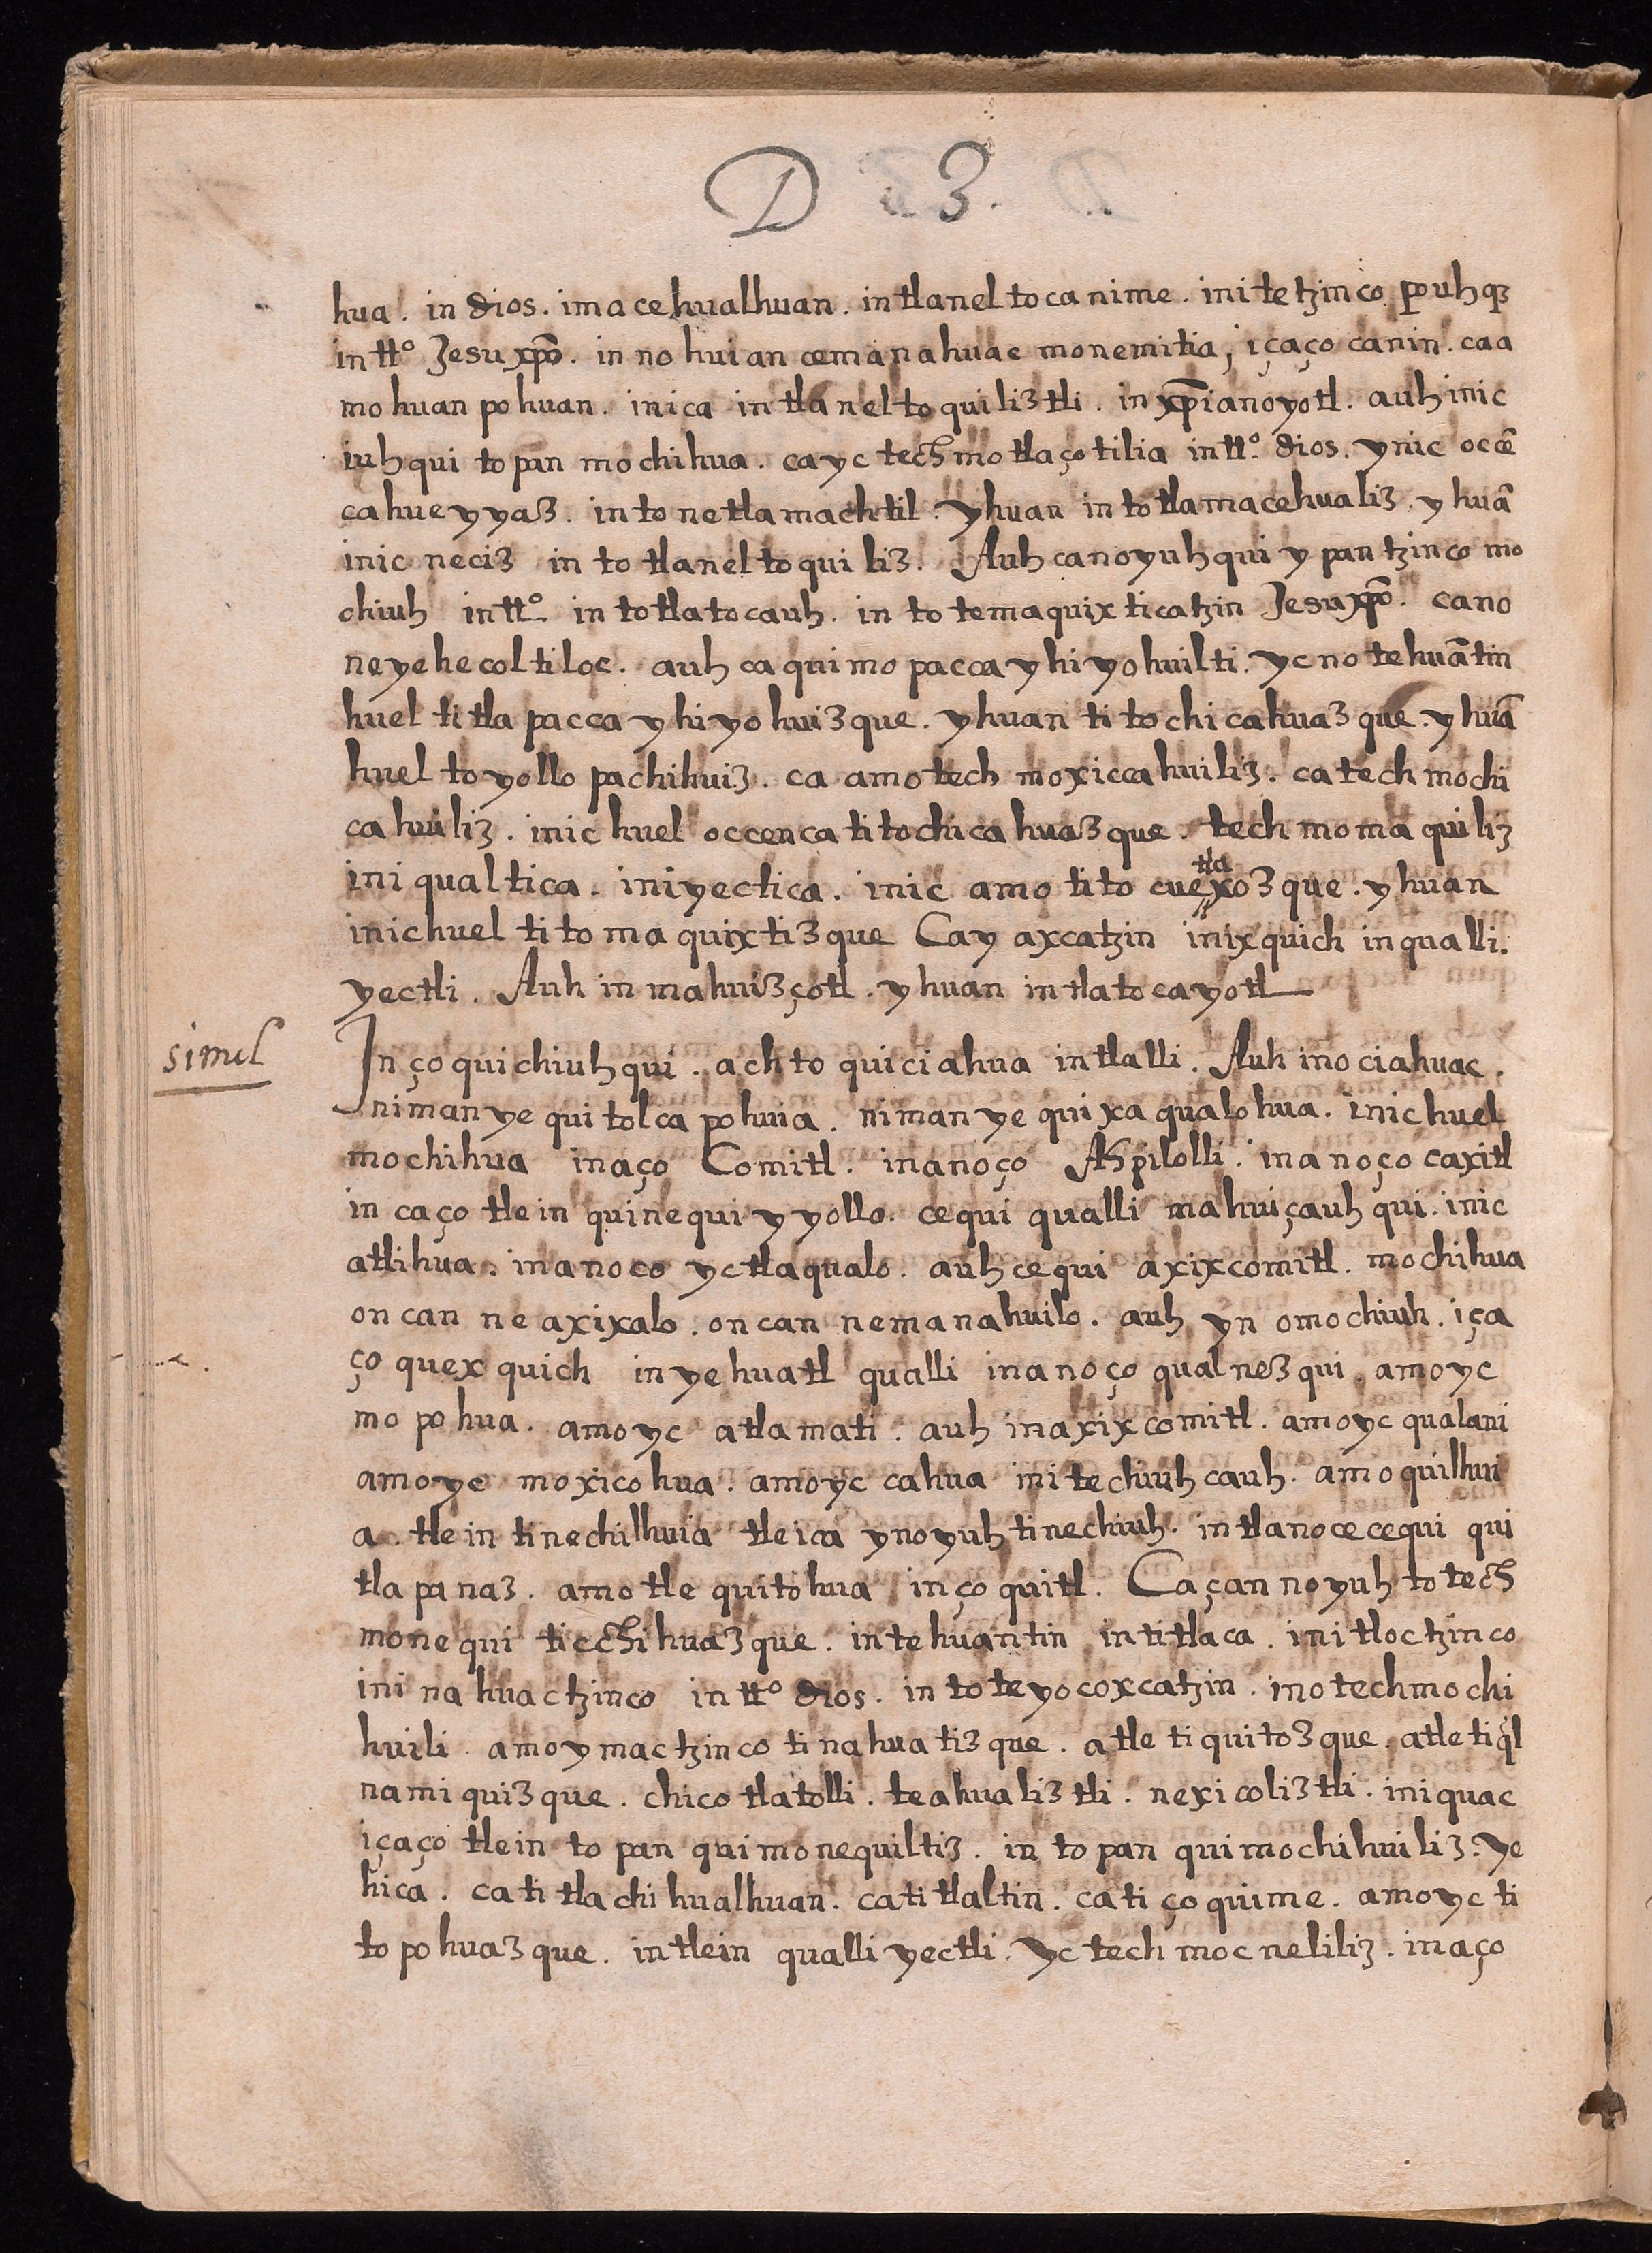 D 3.
hua. in dios. imacehualhuan. in tlaneltocanime. initetzinco pouhq3
in tt.º Jesu xp̄o. in nohuian cemanahuac monemitia, içaço canin. ca a
mohuanpohuan. inica in tlaneltoquiliztli. in xp̄ianoyotl. auh inic
iuhqui topan mochihua. ca yc techmotlaçotilia in tt.º dios. ynic occē
ca hueyyaz. in tonetlamachtil. yhuan in totlamacehualiz. yhuā
inic neciz in totlaneltoquiliz. Auh ca noyuhqui ypantzinco mo
chiuh in tt.º in totlatocauh. in totemaquixticatzin Jesu xp̄o. ca no
neyehecoltiloc. auh ca quimopaccayhiyohuilti. yc no tehuātin
huel titlapaccayhiyohuizque. yhuan titochicahuazque. yhuā
huel toyollo pachihuiz. ca amo techmoxiccahuiliz. ca techmochi
cahuiliz. inic huel occenca titochicahuazque. techmomaquiliz
ini qualtica. iniyectica. inic amo titocuetlaxozque. yhuan
inic huel titomaquixtizque Ca yaxcatzin inixquich in qualli.
yectli. Auh in mahuizçotl. yhuan in tlatocayotl
simil
In çoquichiuhqui. achto quiciahua in tlalli. Auh in ociahuac.
niman ye quitolcapohuia. niman ye quixaqualohua. inic huel
mochihua inaço Comitl. inanoço Apilolli. inanoço caxitl
in caço tlein quinequi yyollo. cequi qualli mahuiçauhqui. inic
atlihua. inanoco yc tlaqualo. auh cequi axixcomitl. mochihua
oncan neaxixalo. oncan nemanahuilo. auh yn omochiuh. iça
ço quexquich in yehuatl qualli inanoço qualnezqui. amo yc
mopohua. amo yc atlamati. auh in axixcomitl. amo yc qualani
amo yc moxicohua. amo yc cahua initechiuhcauh. amo quilhui
a. tlein tinechilhuia tleica ynoyuh tinechiuh. intlanoce cequi qui
tlapanaz. amo tle quitohua in çoquitl. Ca çan noyuh totech
monequi ticchihuazque. in tehuantin in titlaca. initloctzinco
ini nahuactzinco in tt.º dios. in toteyocoxcatzin. in otechmochi
huili. amo ymactzinco tinahuatizque. atle tiquitozque. atle tiq̄l
namiquizque. chicotlatolli. teahualiztli. nexicoliztli. iniquac
içaço tlein topan quimonequiltiz. in topan quimochihuiliz. ye
hica. ca titlachihualhuan. ca titlaltin. ca tiçoquime. amo yc ti
topohuazque. in tlein qualli yectli. yc techmocneliliz. inaço